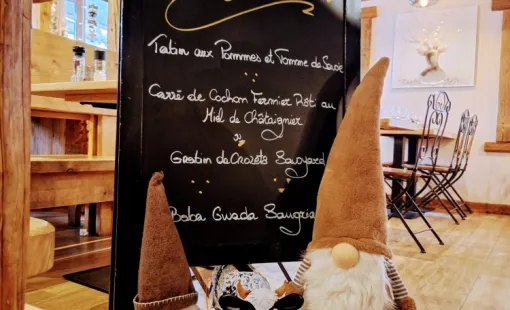 Tatin aux Pommes et Tomme de Savoie
Carré de Cochon Fermier Rôti au
Miel de Châtaignier
Gratin de Crozets Savoyard
Baba Guada Sangria